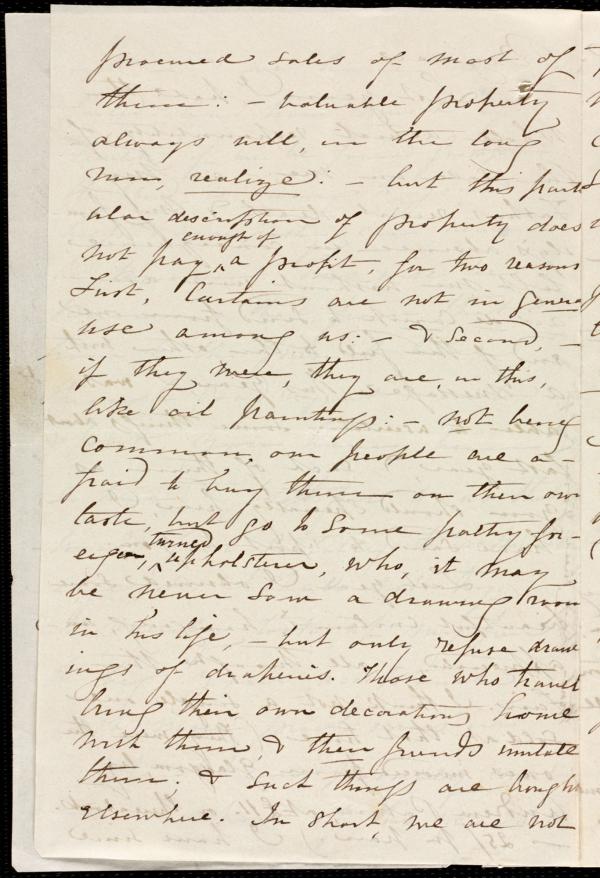 procured sales of most of
them: - valuable property
always will, in the long
run, realize: - but this partic
ular description of property does
enough of
not pay ^ a profit, for two reasons
First, Curtains are not in genera
use among us: - & Second, -
if they were, they are, in this,
like oil paintings: - not being
common, our people are a-
fraid to buy them on their own
taste, but go to some paltry for-
turned
eigner, ^ upholsterer, who, it may
be never saw a drawing room
in his life, - but only refuse draw
ings of draperies. Those who travel
bring their own decorations home
with them, & their friends imitate
them; & such things are bought
elsewhere. In short, we are not